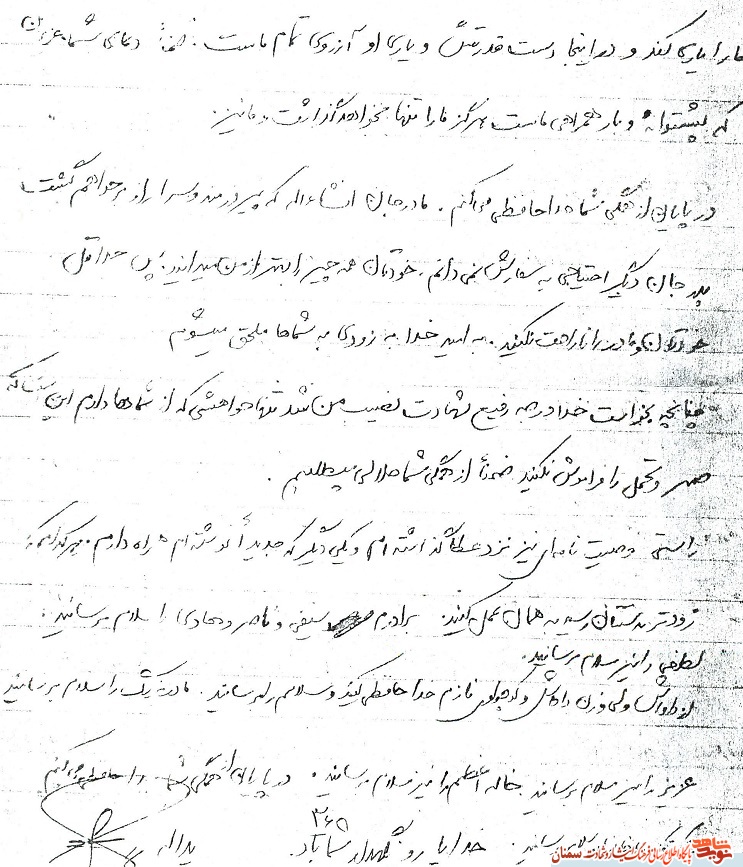 ما را یاری کند و در اینجا دست قدرتش و یاری او آرزوی تمام ماست. ضمناً دعای شما عزیزان
که پشتوانه و یار همراهی ماست هرگز ما را تنها نخواهد گذاشت
در پایان از همگی شما خداحافظی می‌کنم. مادر جان انشاءاله که پیروزمند و سرافراز برخواهم گشت
پدر جان دیگر احتیاجی به سفارش نمی‌دانم. خودتان همه چیز را بهتر از من میدانید؛ پس حداقل
خودتان و مادر را ناراحت نکنید. به امید خدا به زودی به شماها ملحق میشوم
چنانچه بخواست خدا درجه رفیع شهادت نصیب من شد تنها خواهشی که از شماها دارم این است که
صبر و تحمل را فراموش نکنید ضمناً از همگی شما حلالی میطلبم.
راستی وصیت نامه‌ای نیز نزد عطا گذاشته ام و یکی دیگر که جدیداً نوشته ام همراه دارم. هر کدام که
زودتر بدستتان رسید به همان عمل کنید. برادرم سیفی و ناصر و هادی را سلام برسانید.
لطفی را نیز سلام برسانید.
از داداش ولی و زن داداش و کوچولوی نازم خداحافظی کنید و سلامم را برسانید. را سلام برسانید
عزیز را نیز سلام برسانید خاله اعظم را نیز سلام برسانید. در پایان از همگی شما خداحافظی می‌کنم
سلام برسانید. خدا یار و نگهدار شما باد. یداله
۳۶۵
نوید شاهد
پایگاه اطلاع رسانی فرهنگ ایثار و شهادت سمنان